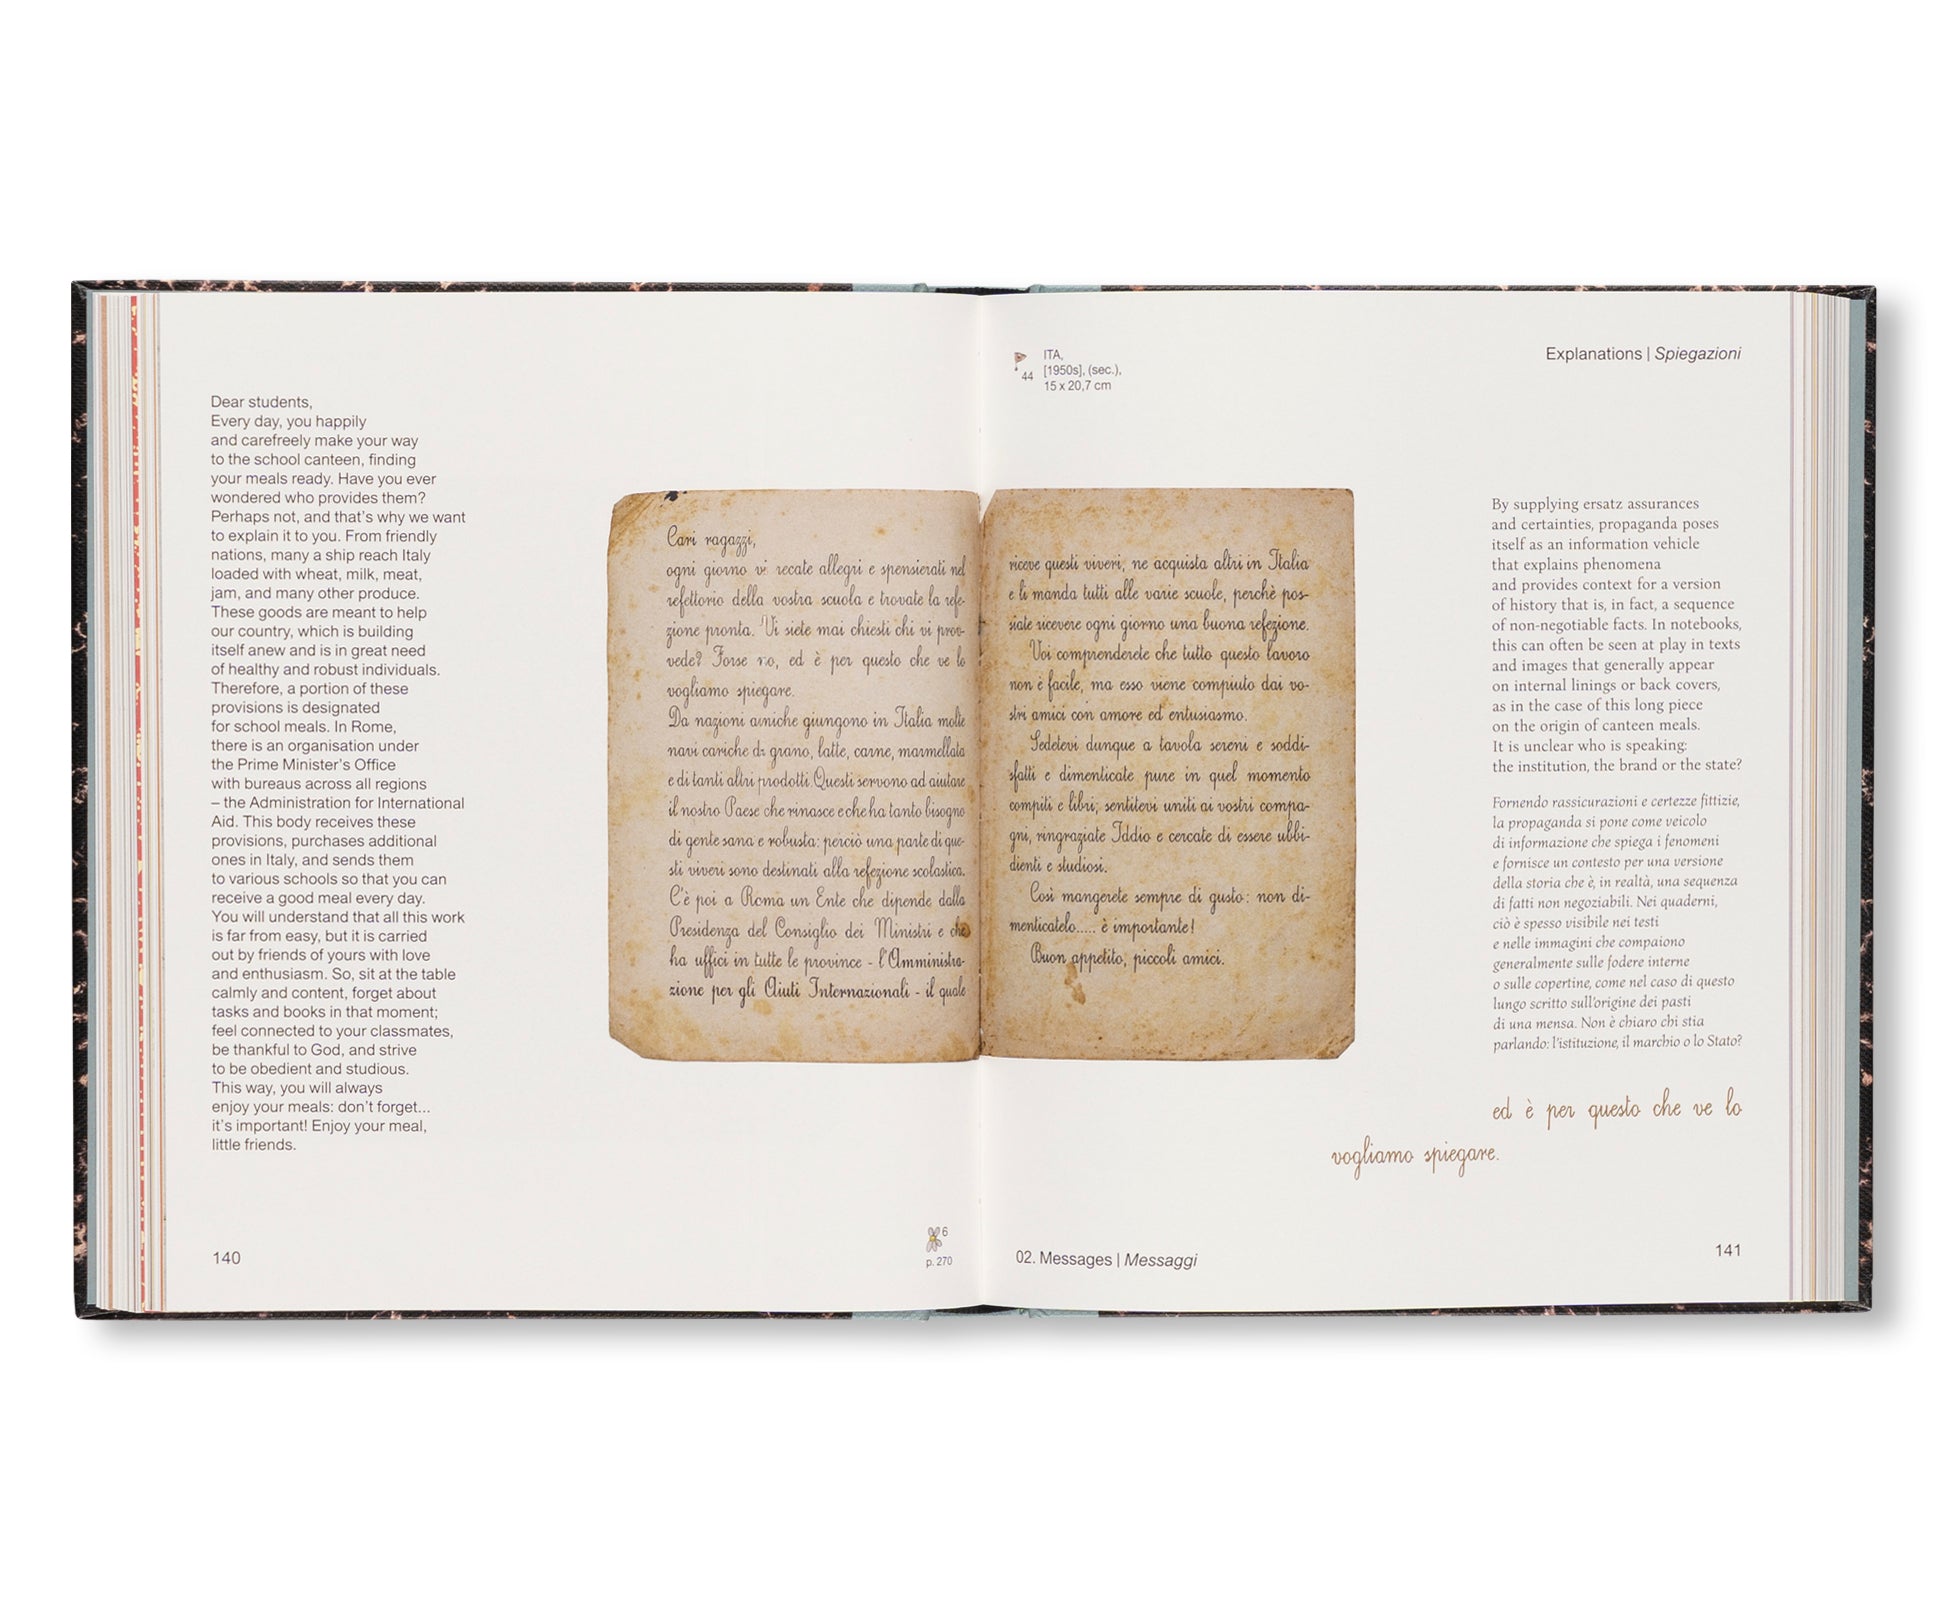 Dear students,
Every day, you happily
and carefreely make your way
to the school canteen, finding
your meals ready. Have you ever
wondered who provides them?
Perhaps not, and that's why we want
to explain it to you. From friendly
nations, many a ship reach Italy
loaded with wheat, milk, meat,
jam, and many other produce.
These goods are meant to help
our country, which is building
itself anew and is in great need
of healthy and robust individuals.
Therefore, a portion of these
provisions is designated
for school meals. In Rome,
there is an organisation under
the Prime Minister's Office
with bureaus across all regions
– the Administration for International
Aid. This body receives these
provisions, purchases additional
ones in Italy, and sends them
to various schools so that you can
receive a good meal every day.
You will understand that all this work
is far from easy, but it is carried
out by friends of yours with love
and enthusiasm. So, sit at the table
calmly and content, forget about
tasks and books in that moment;
feel connected to your classmates,
be thankful to God, and strive
to be obedient and studious.
This way, you will always
enjoy your meals: don't forget...
it's important! Enjoy your meal,
little friends.
140
Cari ragazzi,
ogni giorno vi recate allegri e spensierati nel
refettorio della vostra scuola e trovate la refe-
zione pronta. Vi siete mai chiesti chi vi prov-
vede? Forse no, ed è per questo che ve lo
vogliamo spiegare.
Da nazioni amiche giungono in Italia molte
navi cariche di grano, latte, carne, marmellata
e di tanti altri prodotti. Questi servono ad aiutare
il nostro Paese che rinasce e che ha tanto bisogno
di gente sana e robusta; perciò una parte di que-
sti viveri sono destinati alla refezione scolastica.
C'è poi a Roma un Ente che dipende dalla
Presidenza del Consiglio dei Ministri e che
ha uffici in tutte le province - l'Amministra-
zione per gli Aiuti Internazionali - il quale
6
p. 270
44
ITA,
[1950s], (sec.),
15 x 20,7 cm
Explanations | Spiegazioni
riceve questi viveri, ne acquista altri in Italia
e li manda tutti alle varie scuole, perchè pos-
siate ricevere ogni giorno una buona refezione.
Voi comprenderete che tutto questo lavoro
non è facile, ma esso viene compiuto dai vo-
stri amici con amore ed entusiasmo.
Sedetevi dunque a tavola sereni e soddi-
sfatti e dimenticate pure in quel momento
compiti e libri; sentitevi uniti ai vostri compa-
gni, ringraziate Iddio e cercate di essere ubbi-
dienti e studiosi.
Così mangerete sempre di gusto: non di-
menticatelo..... è importante!
Buon appetito, piccoli amici.
By supplying ersatz assurances
and certainties, propaganda poses
itself as an information vehicle
that explains phenomena
and provides context for a version
of history that is, in fact, a sequence
of non-negotiable facts. In notebooks,
this can often be seen at play in texts
and images that generally appear
on internal linings or back covers,
as in the case of this long piece
on the origin of canteen meals.
It is unclear who is speaking:
the institution, the brand or the state?
Fornendo rassicurazioni e certezze fittizie,
la propaganda si pone come veicolo
di informazione che spiega i fenomeni
e fornisce un contesto per una versione
della storia che è, in realtà, una sequenza
di fatti non negoziabili. Nei quaderni,
ciò è spesso visibile nei testi
e nelle immagini che compaiono
generalmente sulle fodere interne
o sulle copertine, come nel caso di questo
lungo scritto sull'origine dei pasti
di una mensa. Non è chiaro chi stia
parlando: l'istituzione, il marchio o lo Stato?
ed è per questo che ve lo
vogliamo spiegare.
02. Messages | Messaggi
141